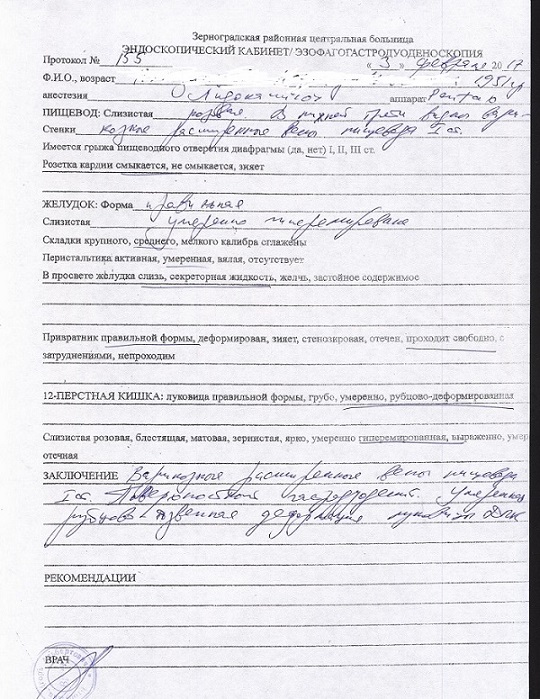 Зерноградская районная центральная больница
ЭНДОСКОПИЧЕСКИЙ КАБИНЕТ/ ЭЗОФАГОГАСТРОДУОДЕНОСКОПИЯ
Протокол № 155 « 3 » февраля 2017
Ф.И.О., возраст 1951гр
анестезия Лидокаином аппарат Pentax
ПИЩЕВОД: Слизистая розовая В нижней трети видны вари-
Стенки козно расширенные вены пищевода I ст.
Имеется грыжа пищеводного отверстия диафрагмы (да, нет) I, II, III ст.
Розетка кардии смыкается, не смыкается, зияет
ЖЕЛУДОК: Форма правильная
Слизистая умеренно гиперемирована
Складки крупного, среднего, мелкого калибра сглажены
Перистальтика активная, умеренная, вялая, отсутствует
В просвете желудка слизь, секреторная жидкость, желчь, застойное содержимое
Привратник правильной формы, деформирован, зияет, стенозирован, отечен, проходит свободно, с
затруднениями, непроходим
12-ПЕРСТНАЯ КИШКА: луковица правильной формы, грубо, умеренно, рубцово-деформированная
Слизистая розовая, блестящая, матовая, зернистая, ярко, умеренно гиперемированная, выраженно, умер
отечная
ЗАКЛЮЧЕНИЕ Варикозное расширенные вены пищевода
I ст. Поверхностный гастродуоденит. Умеренная
рубцово-язвенная деформация луковицы ДПК
РЕКОМЕНДАЦИИ
ВРАЧ